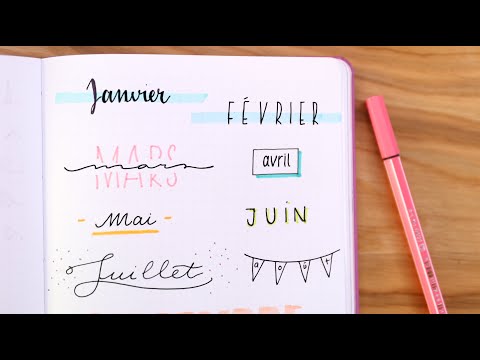 Janvier
FÉVRIER
MARS
mars
avril
- Mai -
JUIN
Juillet
août